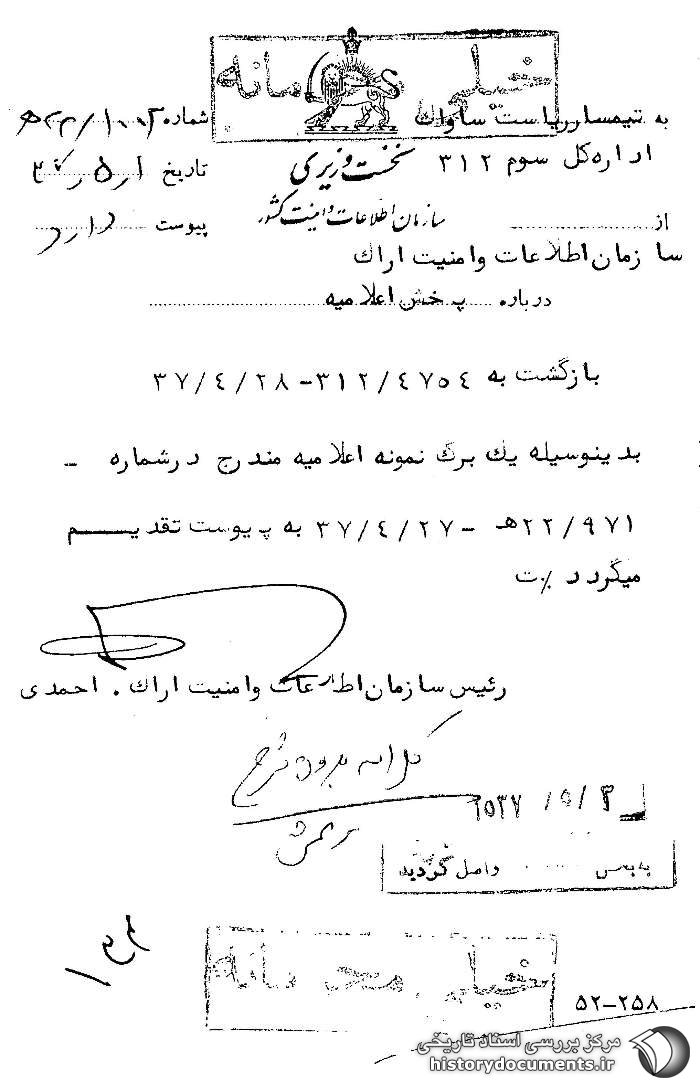 خیلی محرمانه
به تیمسار ریاست ساواک
شماره
اداره کل سوم ۳۱۲
نخست وزیری
تاریخ
سازمان اطلاعات و امنیت کشور
از
پیوست دارد
سازمان اطلاعات و امنیت اراک
درباره پخش اعلامیه
بازگشت به ۳۱۲/۴۷۵۴-۳۷/۴/۲۸
بدینوسیله یک برگ نمونه اعلامیه مندرج در شماره -
۲۲/۹۷۱هـ -۳۷/۴/۲۷ به پیوست تقدیم
میگردد %ت
رئیس سازمان اطلاعات و امنیت اراک . احمدی
۲۵۳۷/۵/۳
به بخش ..... واصل گردید
خیلی محرمانه
۵۲-۲۵۸
مرکز بررسی اسناد تاریخی
historydocuments.ir